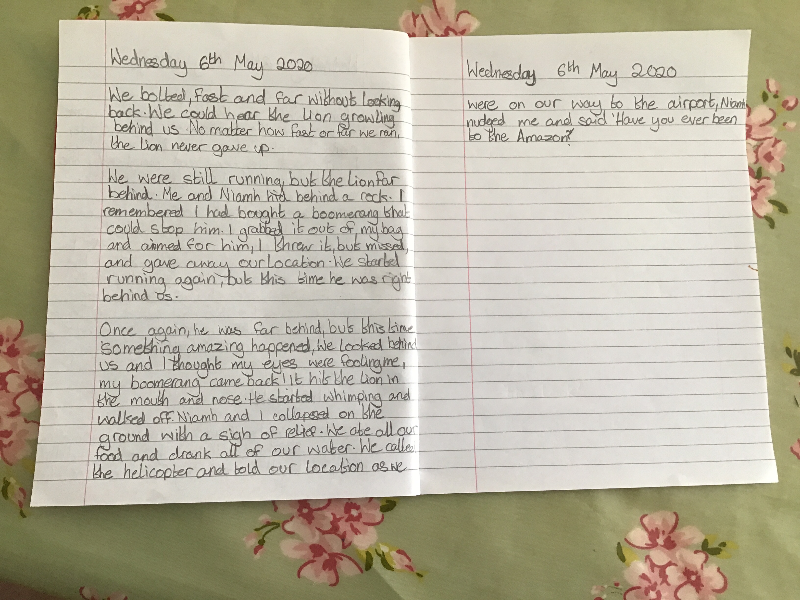 Wednesday 6th May 2020
We bolted, fast and far without looking
back. We could hear the lion growling
behind us. No matter how fast or far we ran,
the lion never gave up.
We were still running, but the lion far
behind. Me and Niamh hid behind a rock. I
remembered I had bought a boomerang that
could stop him. I grabbed it out of my bag
and aimed for him, I threw it, but missed,
and gave away our location. We started
running again, but this time he was right
behind us.
Once again, he was far behind, but this time
something amazing happened, We looked behind
us and I thought my eyes were fooling me,
my boomerang came back! It hit the lion in
the mouth and nose. He started whimping and
walked off. Niamh and I collapsed on the
ground with a sigh of relief. We ate all our
food and drank all of our water. We called
the helicopter and told our location as we
Wednesday 6th May 2020
were on our way to the airport, Niamh
nudged me and said 'Have you ever been
to the Amazon?'